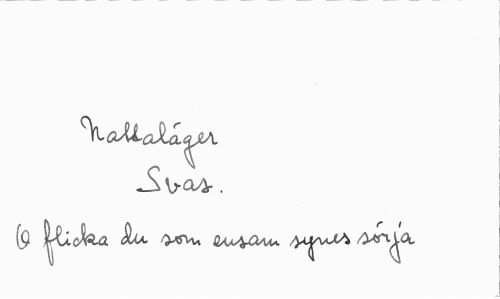 Nattaläger
Svas.
O flicka du som ensam synes sörja